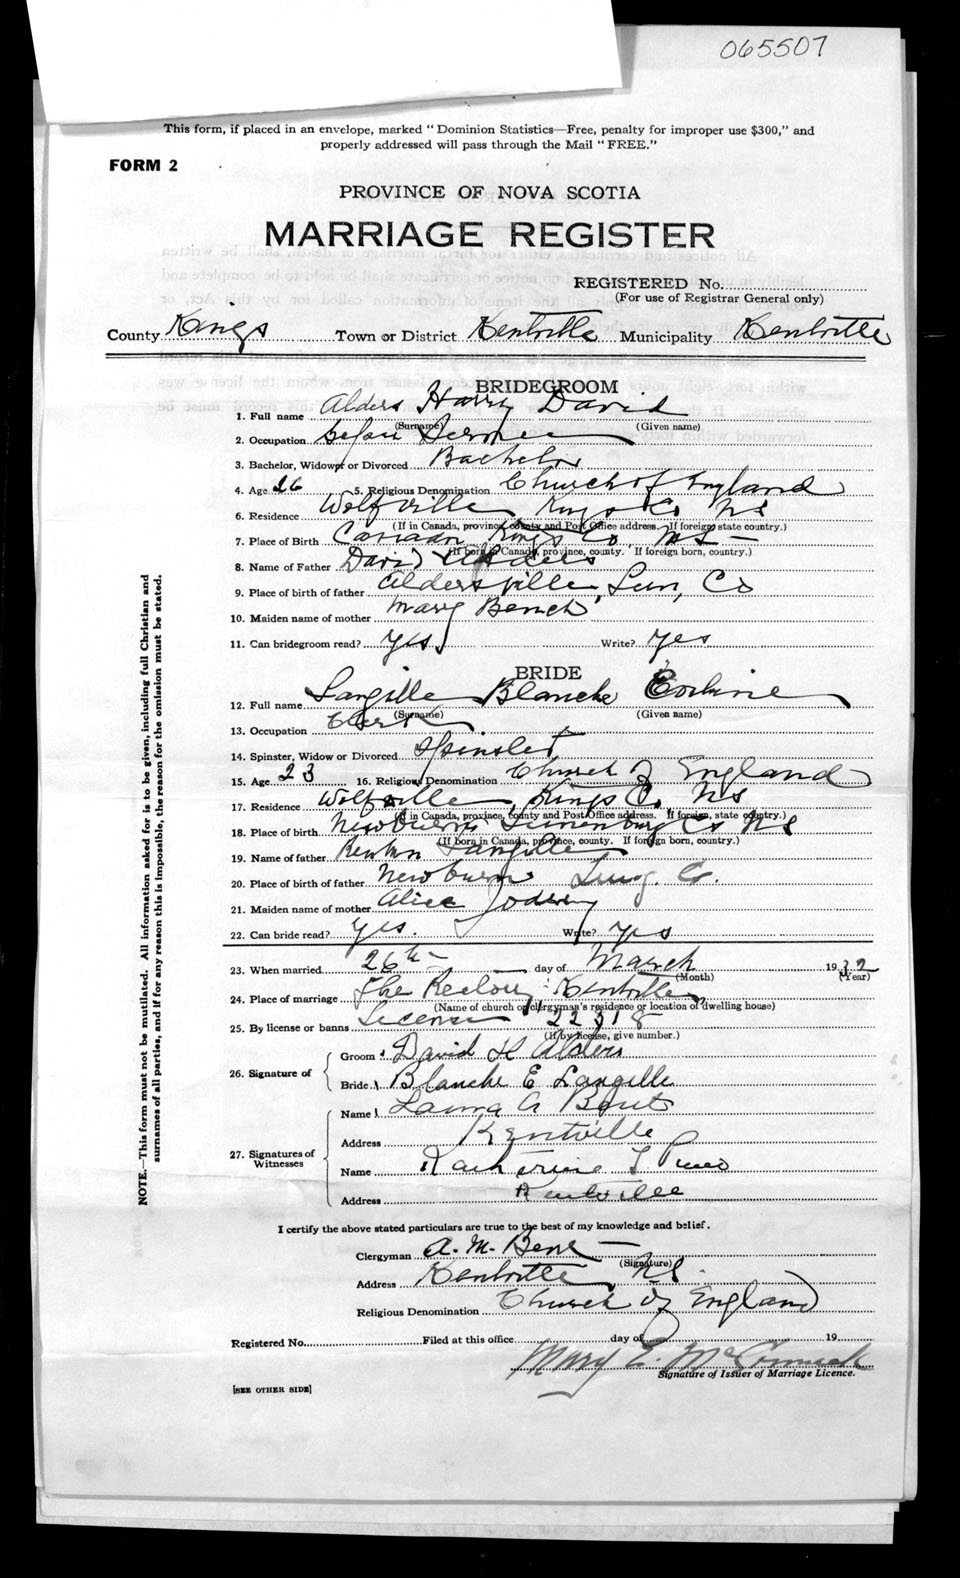 065507
This form, if placed in an envelope, marked "Dominion Statistics—Free, penalty for improper use $300," and
properly addressed will pass through the Mail "FREE."
FORM 2
PROVINCE OF NOVA SCOTIA
MARRIAGE REGISTER
REGISTERED No.
(For use of Registrar General only)
County Kings Town or District Kentville Municipality Kentville
BRIDEGROOM
1. Full name Alders Harry David
(Surname) (Given name)
2. Occupation
3. Bachelor, Widower or Divorced Bachelor
4. Age 26 5. Religious Denomination Church of England
6. Residence Wolfville Kings Co NS
(If in Canada, province, county and Post Office address. If foreign state country.)
7. Place of Birth Canaan Kings Co, NS —
(If born in Canada, province, county. If foreign born, country.)
8. Name of Father David Alders
9. Place of birth of father Aldersville, Lun, Co
10. Maiden name of mother Mary Bench
11. Can bridegroom read? yes Write? yes
BRIDE
12. Full name Langille Blanche
(Surname) (Given name)
13. Occupation Clerk
14. Spinster, Widow or Divorced Spinster
15. Age 23 16. Religious Denomination Church of England
17. Residence Wolfville, Kings Co. NS
(If in Canada, province, county and Post Office address. If foreign, state country.)
18. Place of birth Lunenburg Co NS
(If born in Canada, province, county. If foreign born, country.)
19. Name of father Reuben Langille
20. Place of birth of father Newburn Co.
21. Maiden name of mother Alice Jodrey
22. Can bride read? yes. Write? yes
23. When married 26th day of March 1932
(Month) (Year)
24. Place of marriage The Rectory Kentville
(Name of church or clergyman's residence or location of dwelling house)
25. By license or banns License 22318
(If by license, give number.)
26. Signature of
Groom David H Alders
Bride Blanche E Langille
27. Signatures of Witnesses
Name Laura A
Address Kentville
Name Katherine L
Address Kentville
I certify the above stated particulars are true to the best of my knowledge and belief.
Clergyman A. M. Bent
(Signature)
Address Kentville NS.
Religious Denomination Church of England
Registered No. Filed at this office day of 19
Mary E. McCormick
Signature of Issuer of Marriage Licence.
[SEE OTHER SIDE]
NOTE.—This form must not be mutilated. All information asked for is to be given, including full Christian and
surnames of all parties, and if for any reason this is impossible, the reason for the omission must be stated.